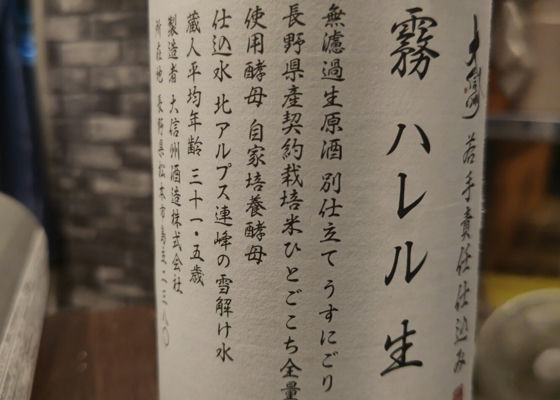 若手責任仕込み
霧ハレル生
無濾過生原酒 別仕立て うすにごり
長野県産契約栽培米ひとごこち全量
使用酵母 自家培養酵母
仕込水 北アルプス連峰の雪解け水
蔵人平均年齢 三十一・五歳
製造者 大信州酒造株式会社
所在地 長野県松本市島立二三八〇